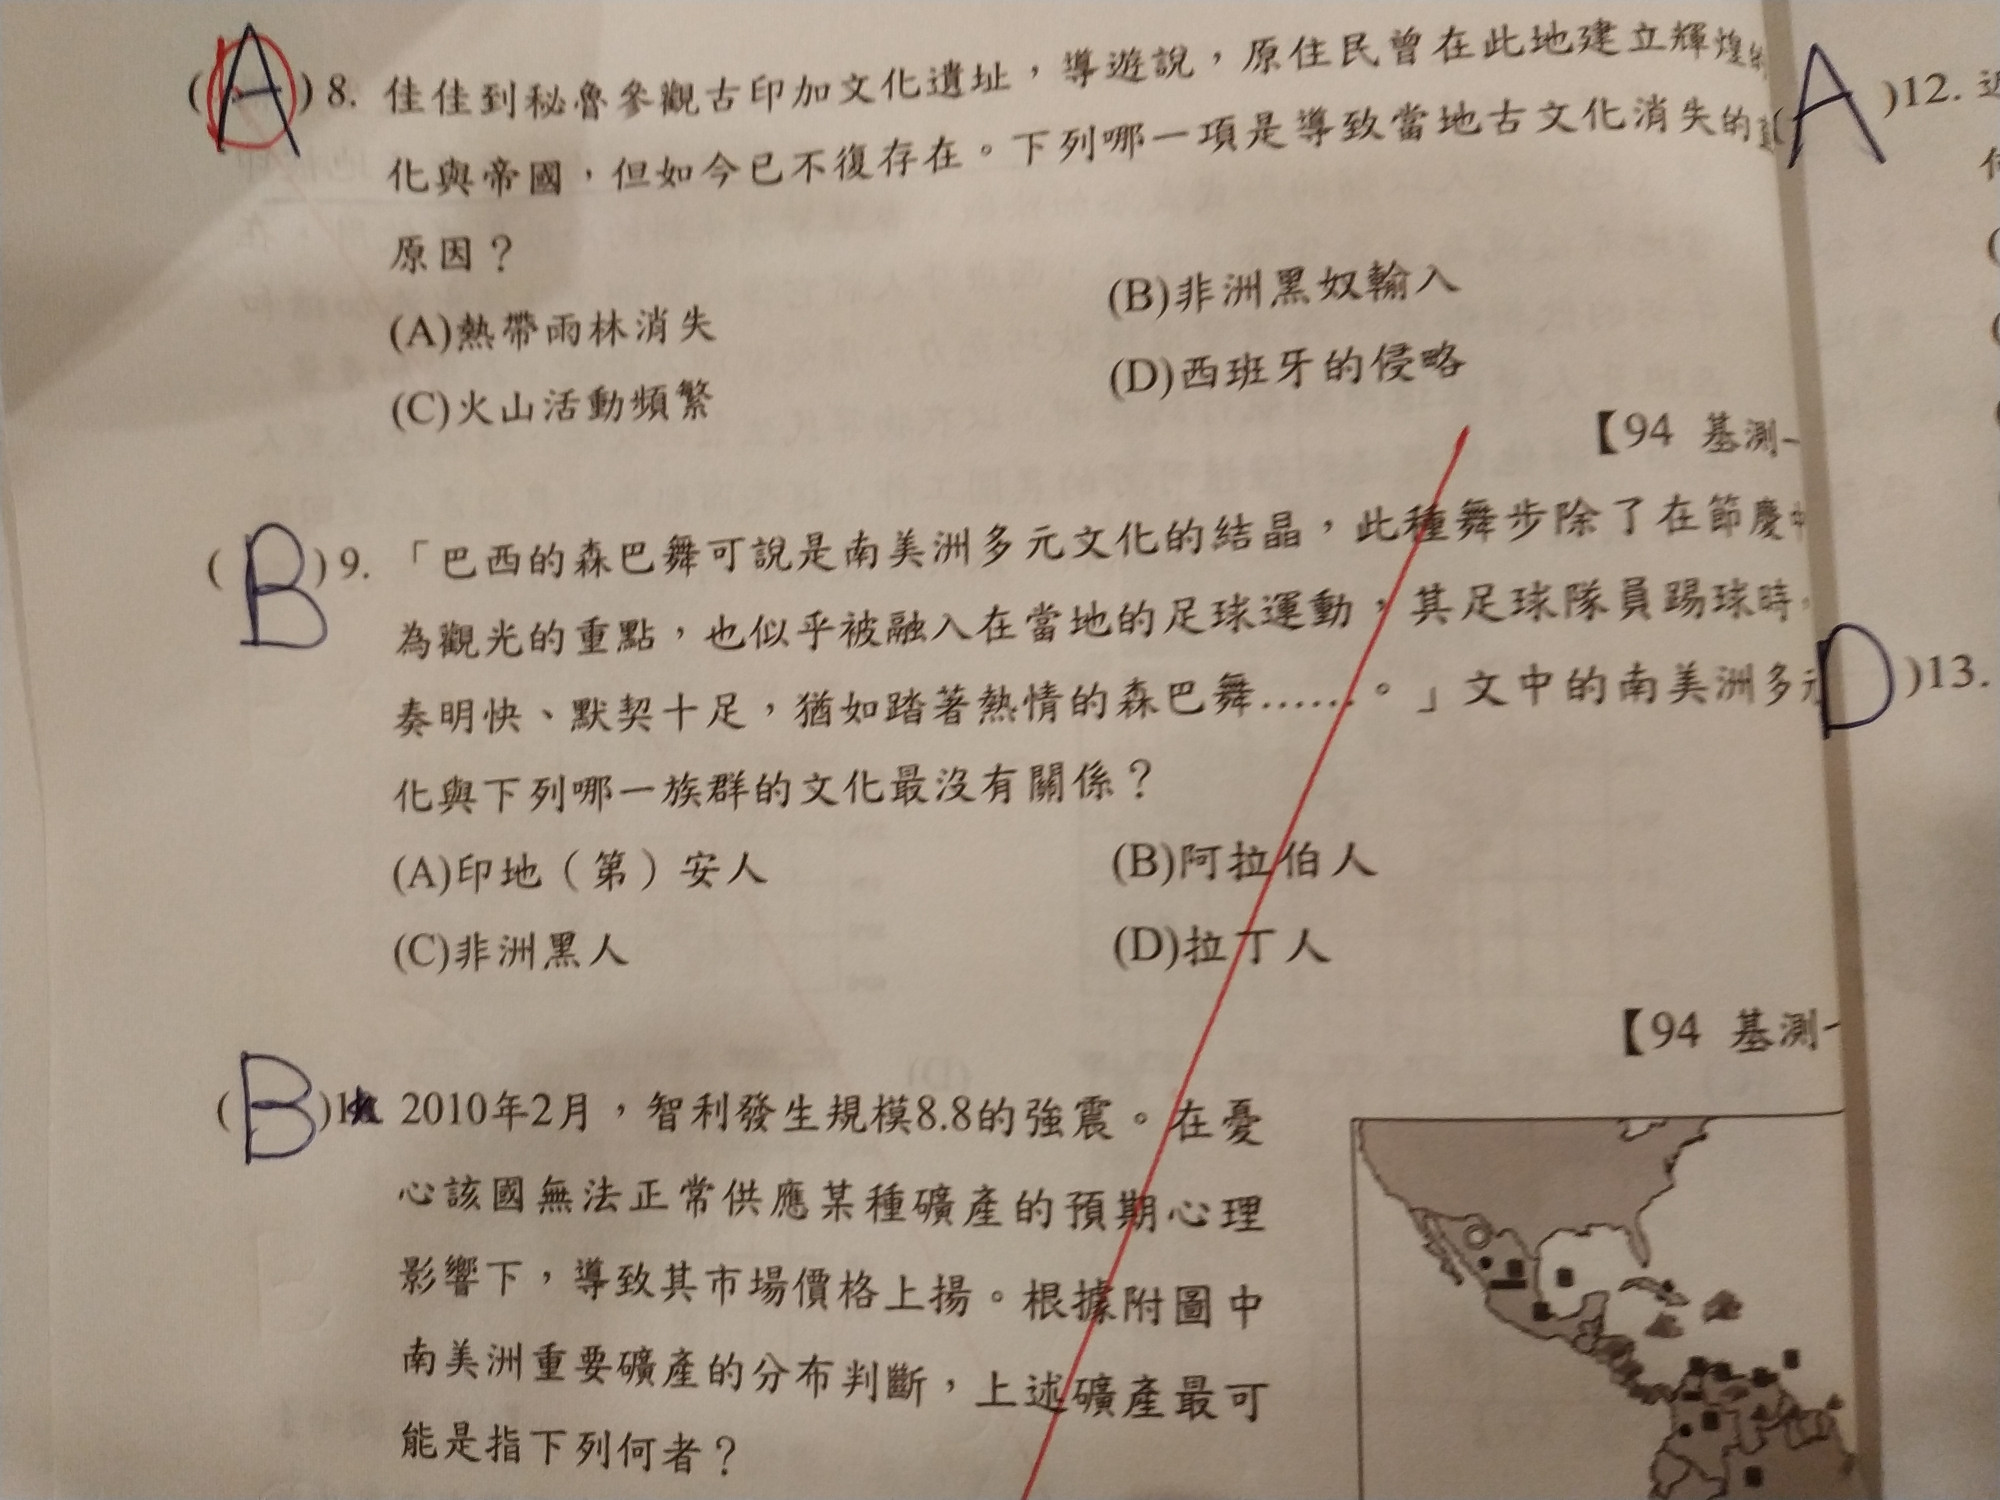 (A)8. 佳佳到秘魯參觀古印加文化遺址，導遊說，原住民曾在此地建立輝煌
化與帝國，但如今已不復存在。下列哪一項是導致當地古文化消失的
原因？
(A)熱帶雨林消失 (B)非洲黑奴輸入
(C)火山活動頻繁 (D)西班牙的侵略
【94 基測
(B)9. 「巴西的森巴舞可說是南美洲多元文化的結晶，此種舞步除了在節慶
為觀光的重點，也似乎被融入在當地的足球運動，其足球隊員踢球時，
奏明快、默契十足，猶如踏著熱情的森巴舞……。」文中的南美洲多
化與下列哪一族群的文化最沒有關係？
(A)印地（第）安人 (B)阿拉伯人
(C)非洲黑人 (D)拉丁人
【94 基測
(B) 2010年2月，智利發生規模8.8的強震。在憂
心該國無法正常供應某種礦產的預期心理
影響下，導致其市場價格上揚。根據附圖中
南美洲重要礦產的分布判斷，上述礦產最可
能是指下列何者？
A)12.
D)13.